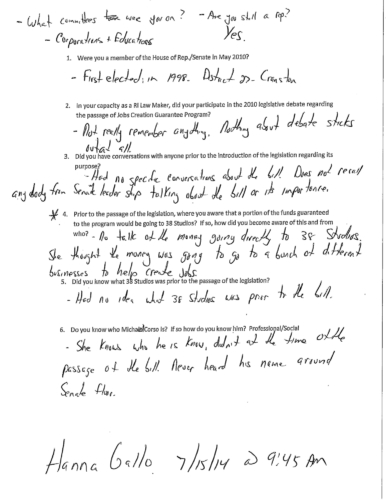 - What committees were you on? - Are you still a rep?
- Corporations + Education Yes.
1. Were you a member of the House of Rep./Senate in May 2010?
- First elected: in 1998. District 27- Cranston
2. In your capacity as a RI Law Maker, did your participate in the 2010 legislative debate regarding
the passage of Jobs Creation Guarantee Program?
- Not really remember anything. Nothing about debate sticks
out at all.
3. Did you have conversations with anyone prior to the introduction of the legislation regarding its
purpose?
- Had no specific conversations about the bill. Does not recall
anybody from Senate leadership talking about the bill or its importance.
* 4. Prior to the passage of the legislation, where you aware that a portion of the funds guaranteed
to the program would be going to 38 Studios? If so, how did you become aware of this and from
who? - No talk of the money going directly to 38 Studios.
She thought the money was going to go to a bunch of different
businesses to help create jobs.
5. Did you know what 38 Studios was prior to the passage of the legislation?
- Had no idea what 38 Studios was prior to the bill.
6. Do you know who Michael Corso is? If so how do you know him? Professional/Social
- She knows who he is know, didn't at the time of the
passage of the bill. Never heard his name around
Senate floor.
Hanna Gallo 7/15/14 @ 9:45 AM